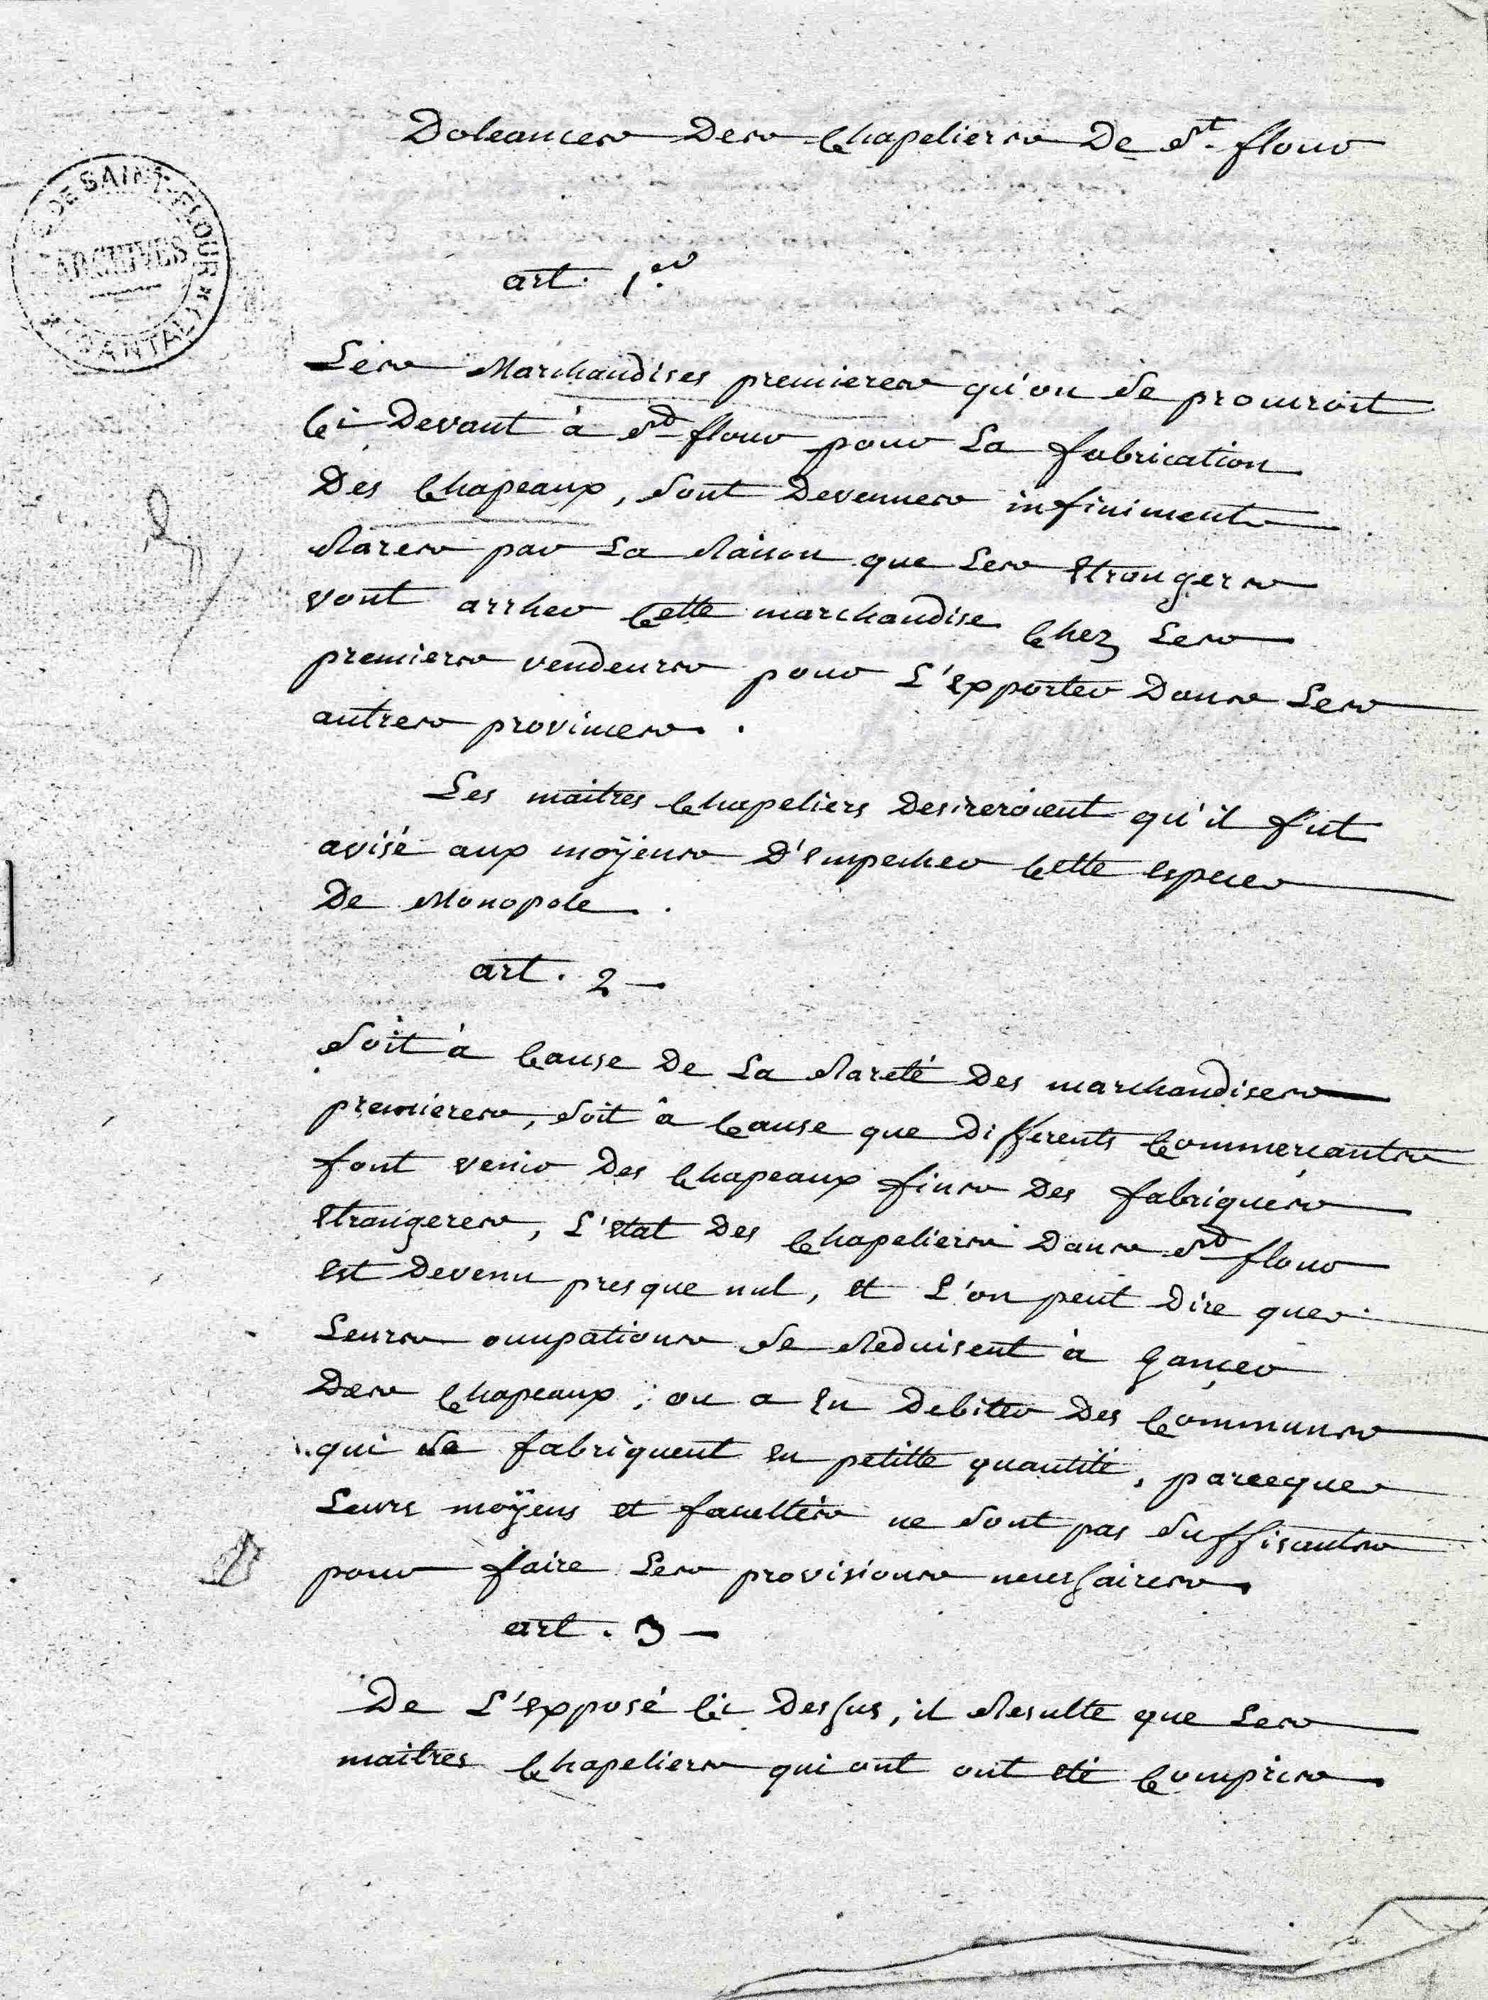 Doleances Des Chapeliers De St. flour
DE SAINT-FLOUR
ARCHIVES
(CANTAL)
art. 1er.
Les Marchandises premieres qu'on se procuroit
Ci Devant à St. flour pour La fabrication
Des Chapeaux, sont Devenues infiniment
Rares par La Raison que Les Etrangers
vont arrher Cette marchandise Chez Les
premiers vendeurs pour L'Exporter Dans Les
autres provinces.
Les maitres Chapeliers Desireroient qu'il fut
avisé aux moÿens D'Empecher Cette espece
De Monopole.
art. 2
Soit à Cause De La Rareté Des marchandises
premieres, soit à Cause que Differents Commerçants
font venir Des Chapeaux fins Des fabriques
Etrangeres, L'Etat Des Chapeliers Dans St. flour
Est Devenu presque nul, Et L'on peut Dire que
Leurs occupations se Reduisent à Gancer
Des Chapeaux; ou a En Debiter Des Communs
qui se fabriquent En petitte quantité, parceque
Leurs moÿens Et facultés ne sont pas suffisants
pour faire Les provisions necessaires.
art. 3
De L'Exposé Ci Dessus, il Resulte que Les
maitres Chapeliers qui ont ont Eté Compris